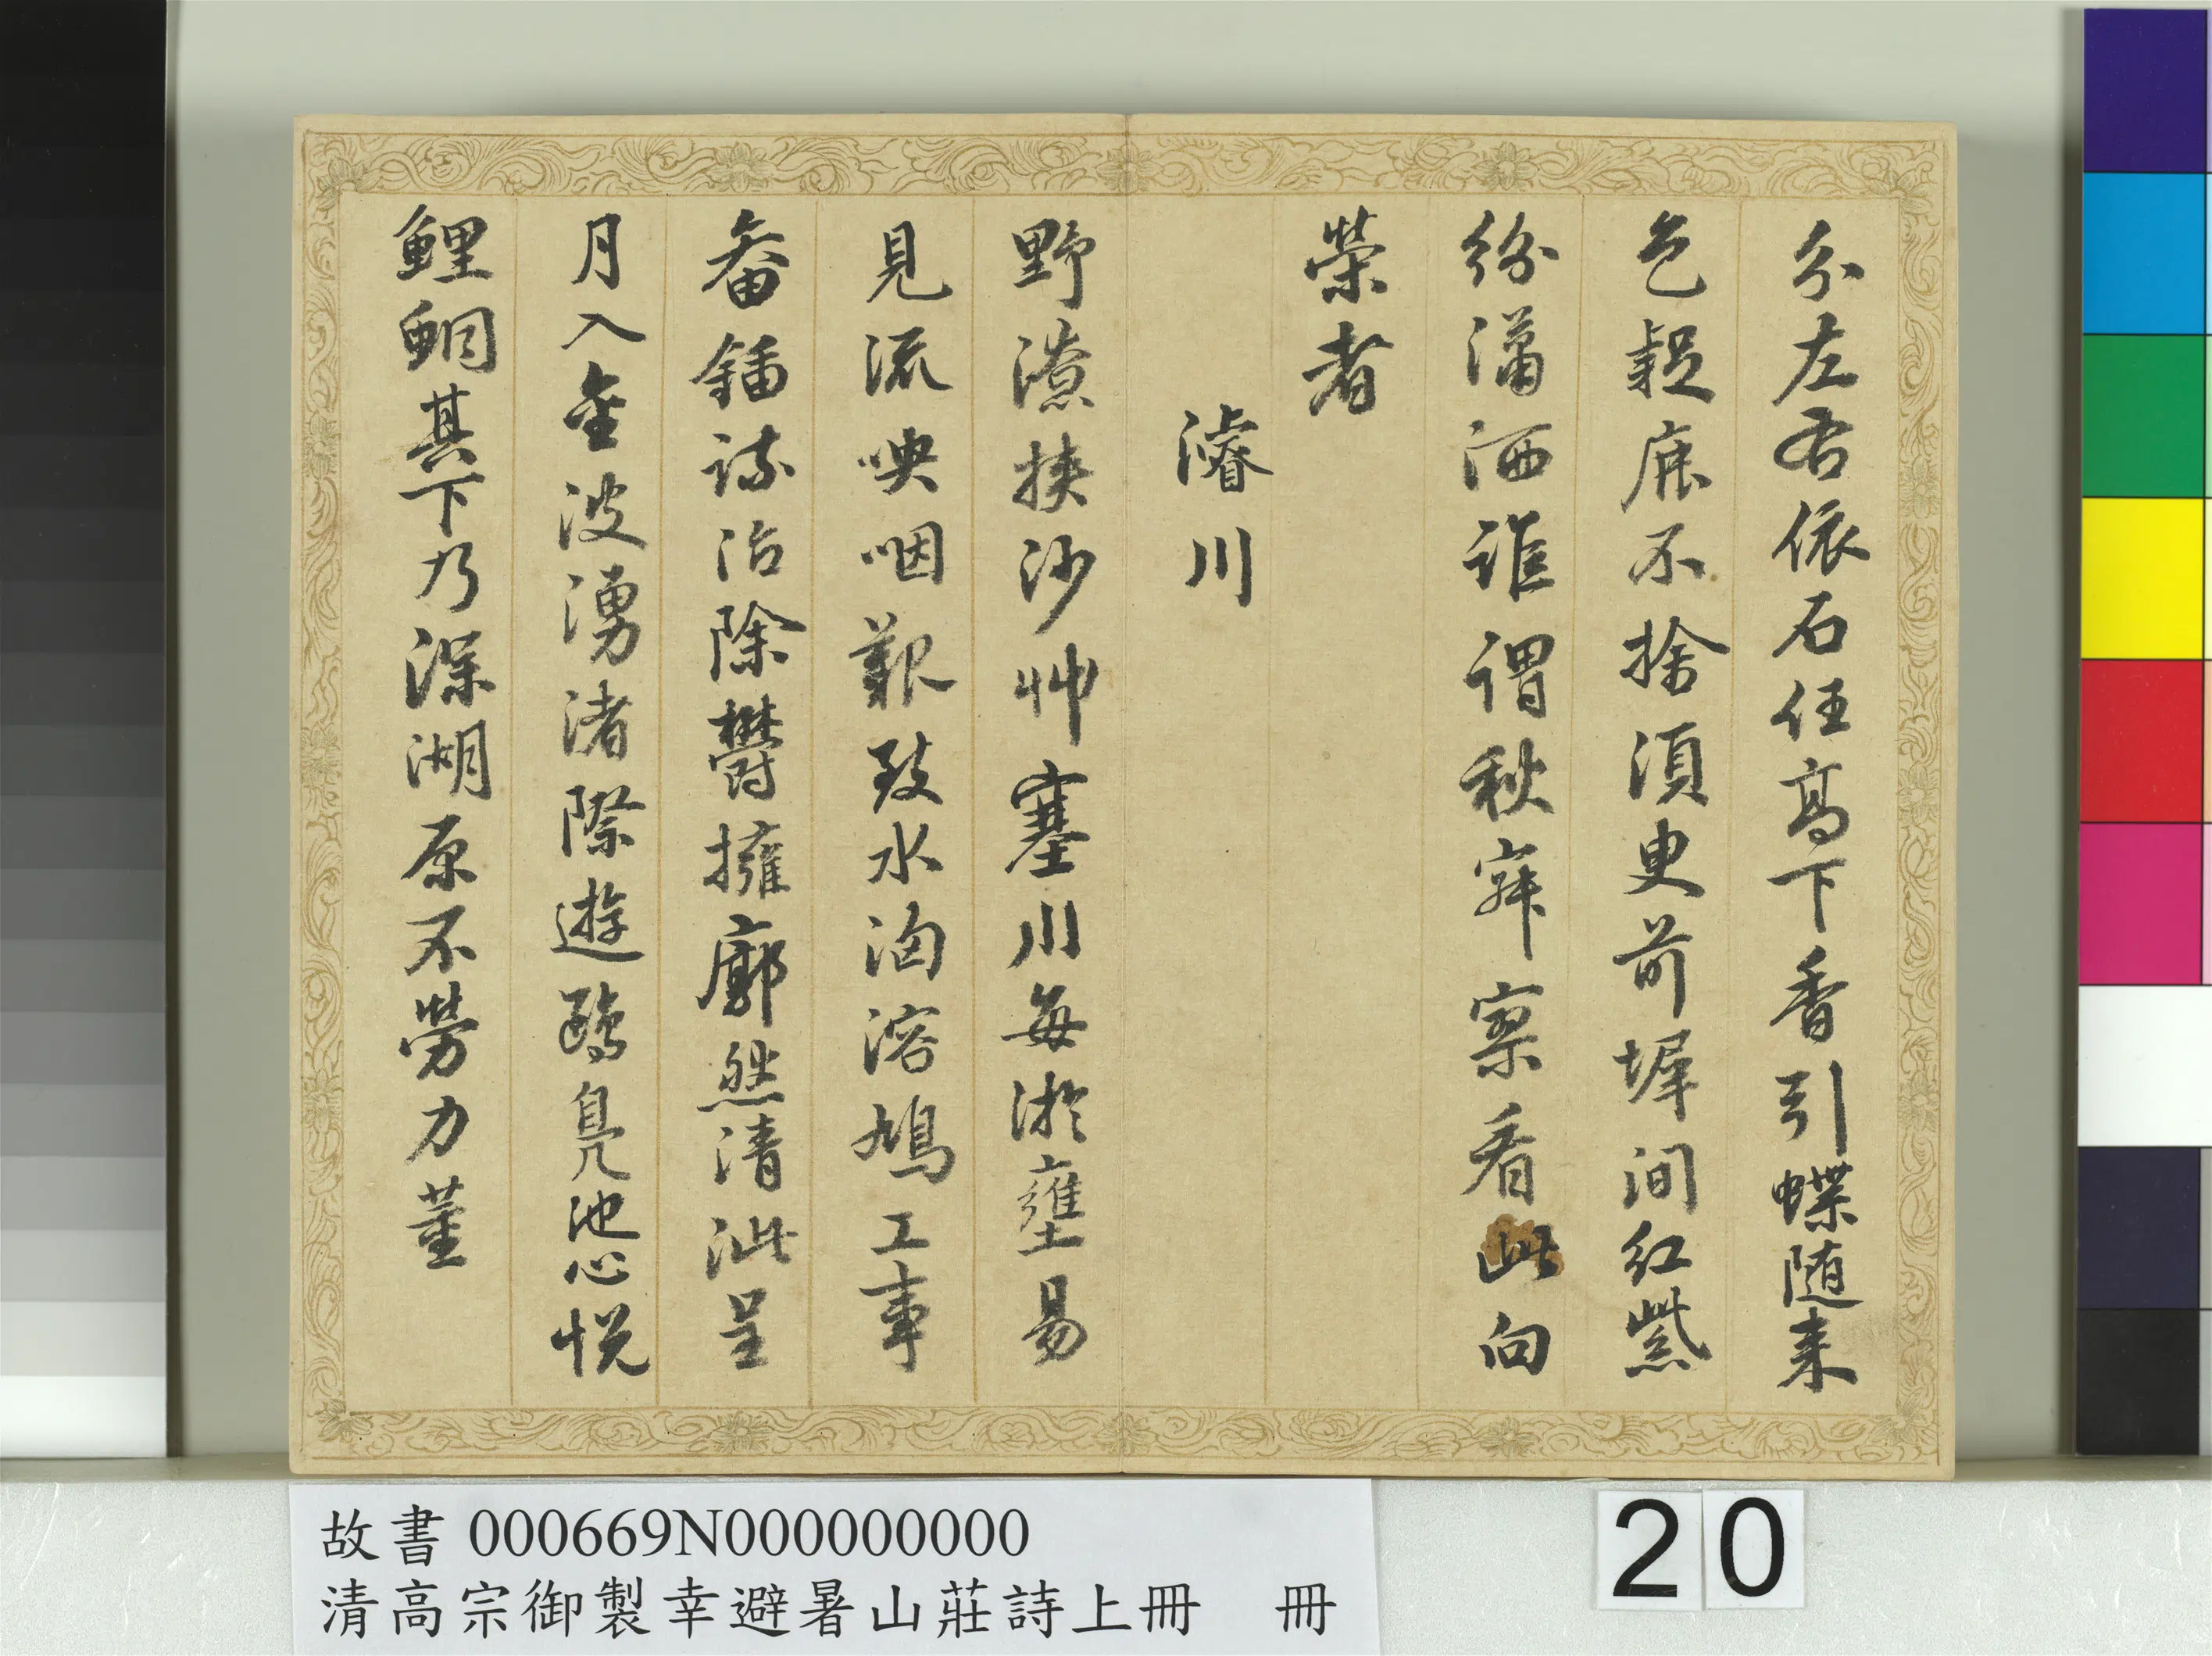 分左右依石任高下香引蝶随来
色疑麻不捨須更前墀间红紫
紛瀟洒誰謂秋寂察看此向
榮者
濬川
野潦挟沙艸塞川每淤壅易
見流咉咽艱致水滃溶鳩工事
畚鍤疏治除鬱擁廓然清泚呈
月入金波湧渚際遊鷁鳧池心悦
鯉鮦其下乃深湖原不勞力堇
故書 000669N000000000
清高宗御製幸避暑山莊詩上冊 冊
20